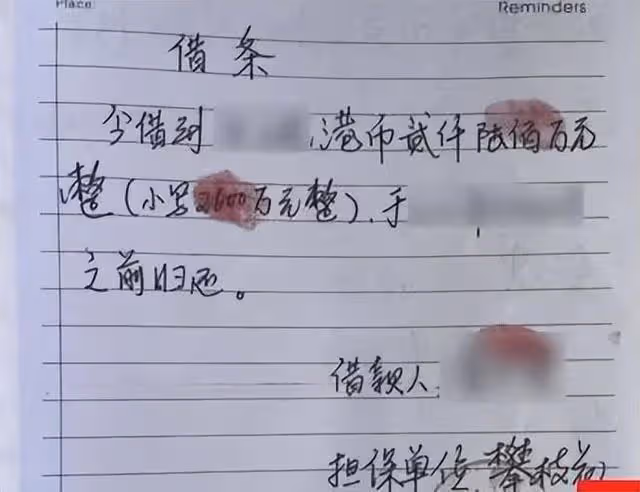 Place
Reminders
借条
今借到 港币贰仟陆佰万元
整(小写2600万元整),于
之前归还。
借款人
担保单位 攀枝花